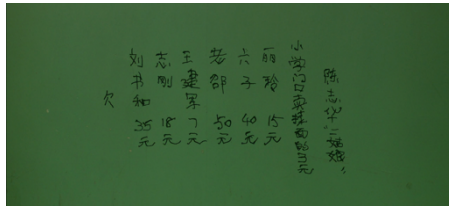 陈志华二姑嫂,
小学门口卖辣面的3元
丽玲 15元
六子 40元
老郃 50元
王建军 7元
志刚 18元
刘书和 35元
欠